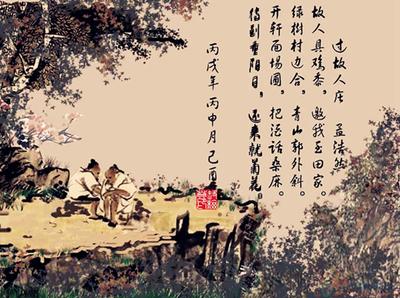 过故人庄 孟浩然
故人具鸡黍，邀我至田家。
绿樹村边合，青山郭外斜。
开轩面場圃，把酒话桑麻。
待到重阳日，还来就菊花。
丙戌年 丙申月 己酉